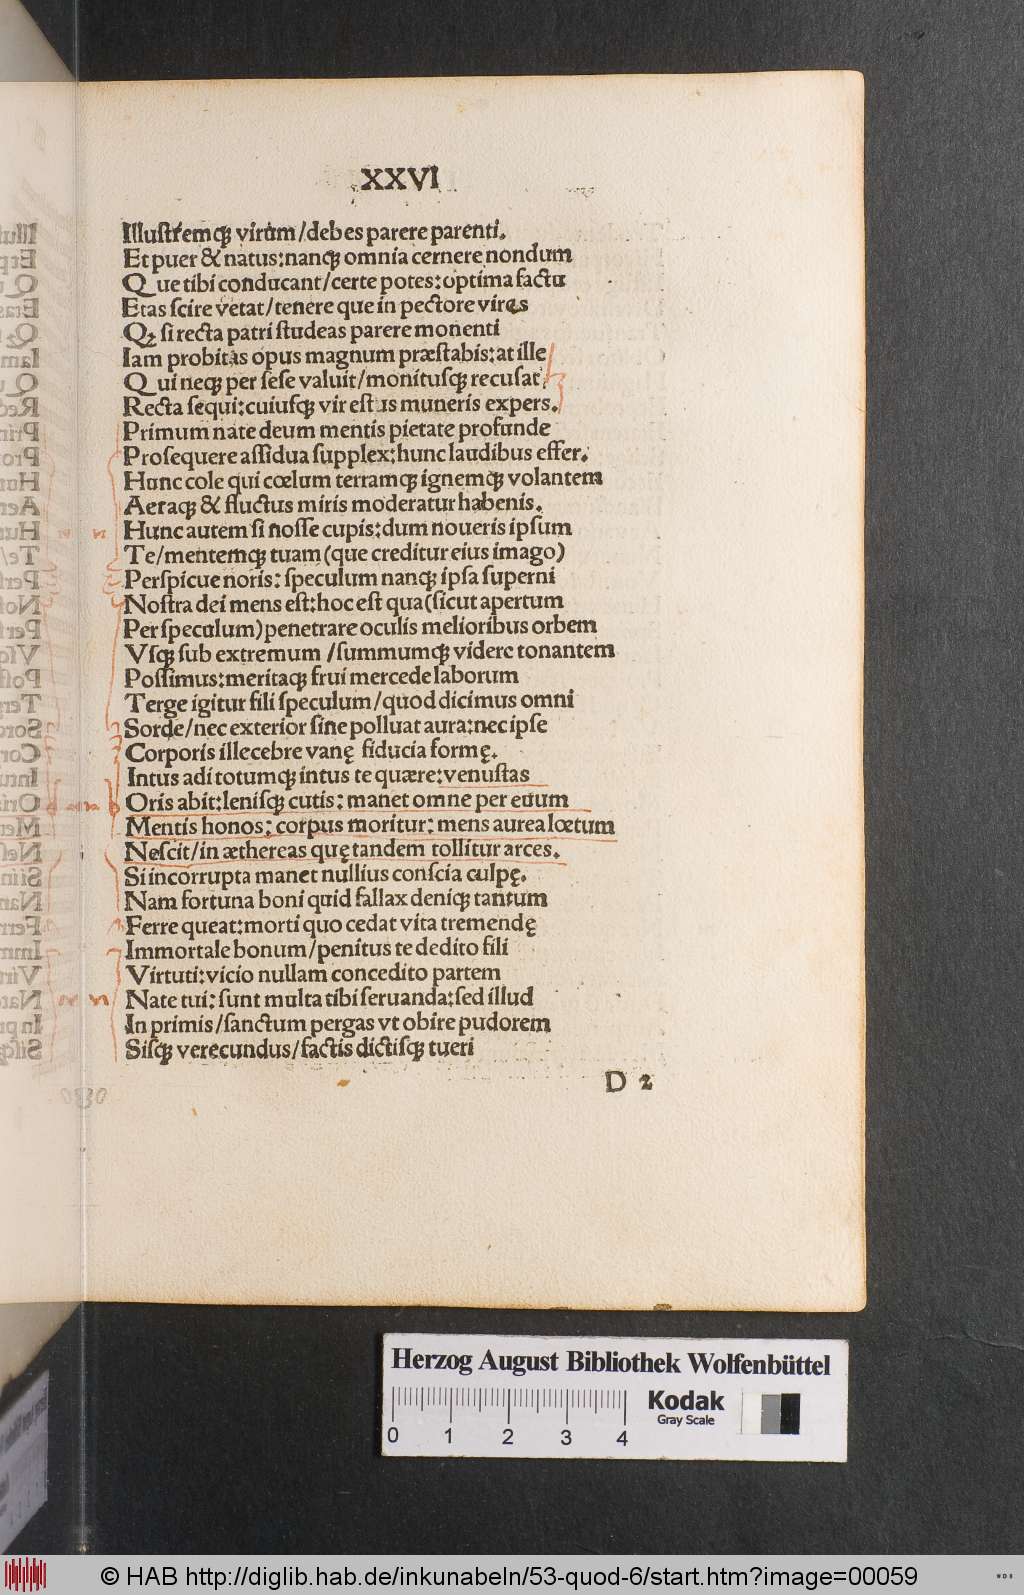 XXVI
Illuſtremq; virum/debes parere parenti.
Et puer & natus:nanq; omnia cernere nondum
Que tibi conducant/certe potes:optima factu
Etas ſcire vetat/tenere que in pectore vires
Qꝫ ſi recta patri ſtudeas parere monenti
Iam probitas opus magnum præſtabis:at ille
Qui neq; per ſeſe valuit/monituſq; recuſat
Recta ſequi:cuiuſq; vir eſt us muneris expers.
Primum nate deum mentis pietate profunde
Proſequere aſſidua ſupplex:hunc laudibus effer.
Hunc cole qui cœlum terramq; ignemq; volantem
Aeraq; & fluctus miris moderatur habenis.
Hunc autem ſi noſſe cupis:dum noueris ipſum
Te/mentemq; tuam(que creditur eius imago)
Perſpicue noris: ſpeculum nanq; ipſa ſuperni
Noſtra dei mens eſt:hoc eſt qua(ſicut apertum
Per ſpeculum)penetrare oculis melioribus orbem
Vſq; ſub extremum /ſummumq; videre tonantem
Poſſimus:meritaq; frui mercede laborum
Terge igitur fili ſpeculum/quod dicimus omni
Sorde/nec exterior ſine polluat aura:nec ipſe
Corporis illecebre vanę fiducia formę.
Intus adi totumq; intus te quære:venuſtas
Oris abit:leniſq; cutis: manet omne per euum
Mentis honos: corpus moritur: mens aurea lœtum
Neſcit/in æthereas quę tandem tollitur arces.
Si incorrupta manet nullius conſcia culpę.
Nam fortuna boni quid fallax deniq; tantum
Ferre queat:morti quo cedat vita tremendę
Immortale bonum/penitus te dedito fili
Virtuti:vicio nullam concedito partem
Nate tui: ſunt multa tibi ſeruanda:ſed illud
In primis/ſanctum pergas vt obire pudorem
Siſq; verecundus/factis dictiſq; tueri
D 2
Herzog August Bibliothek Wolfenbüttel
Kodak
Gray Scale
0 1 2 3 4
© HAB http://diglib.hab.de/inkunabeln/53-quod-6/start.htm?image=00059